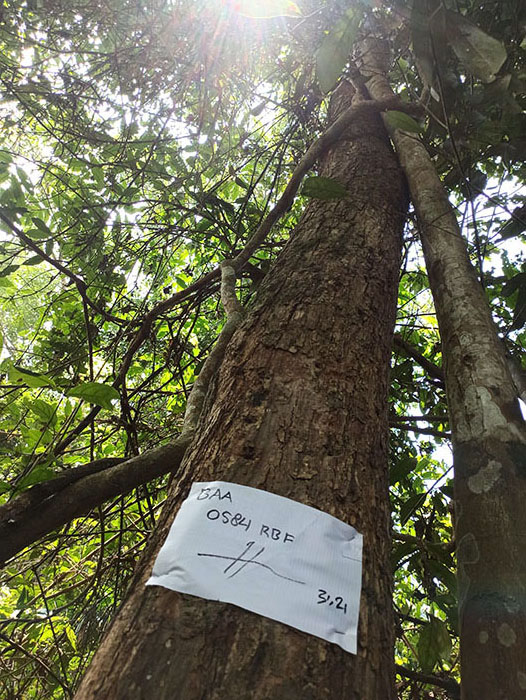 BAA
0584 RBF
3,21